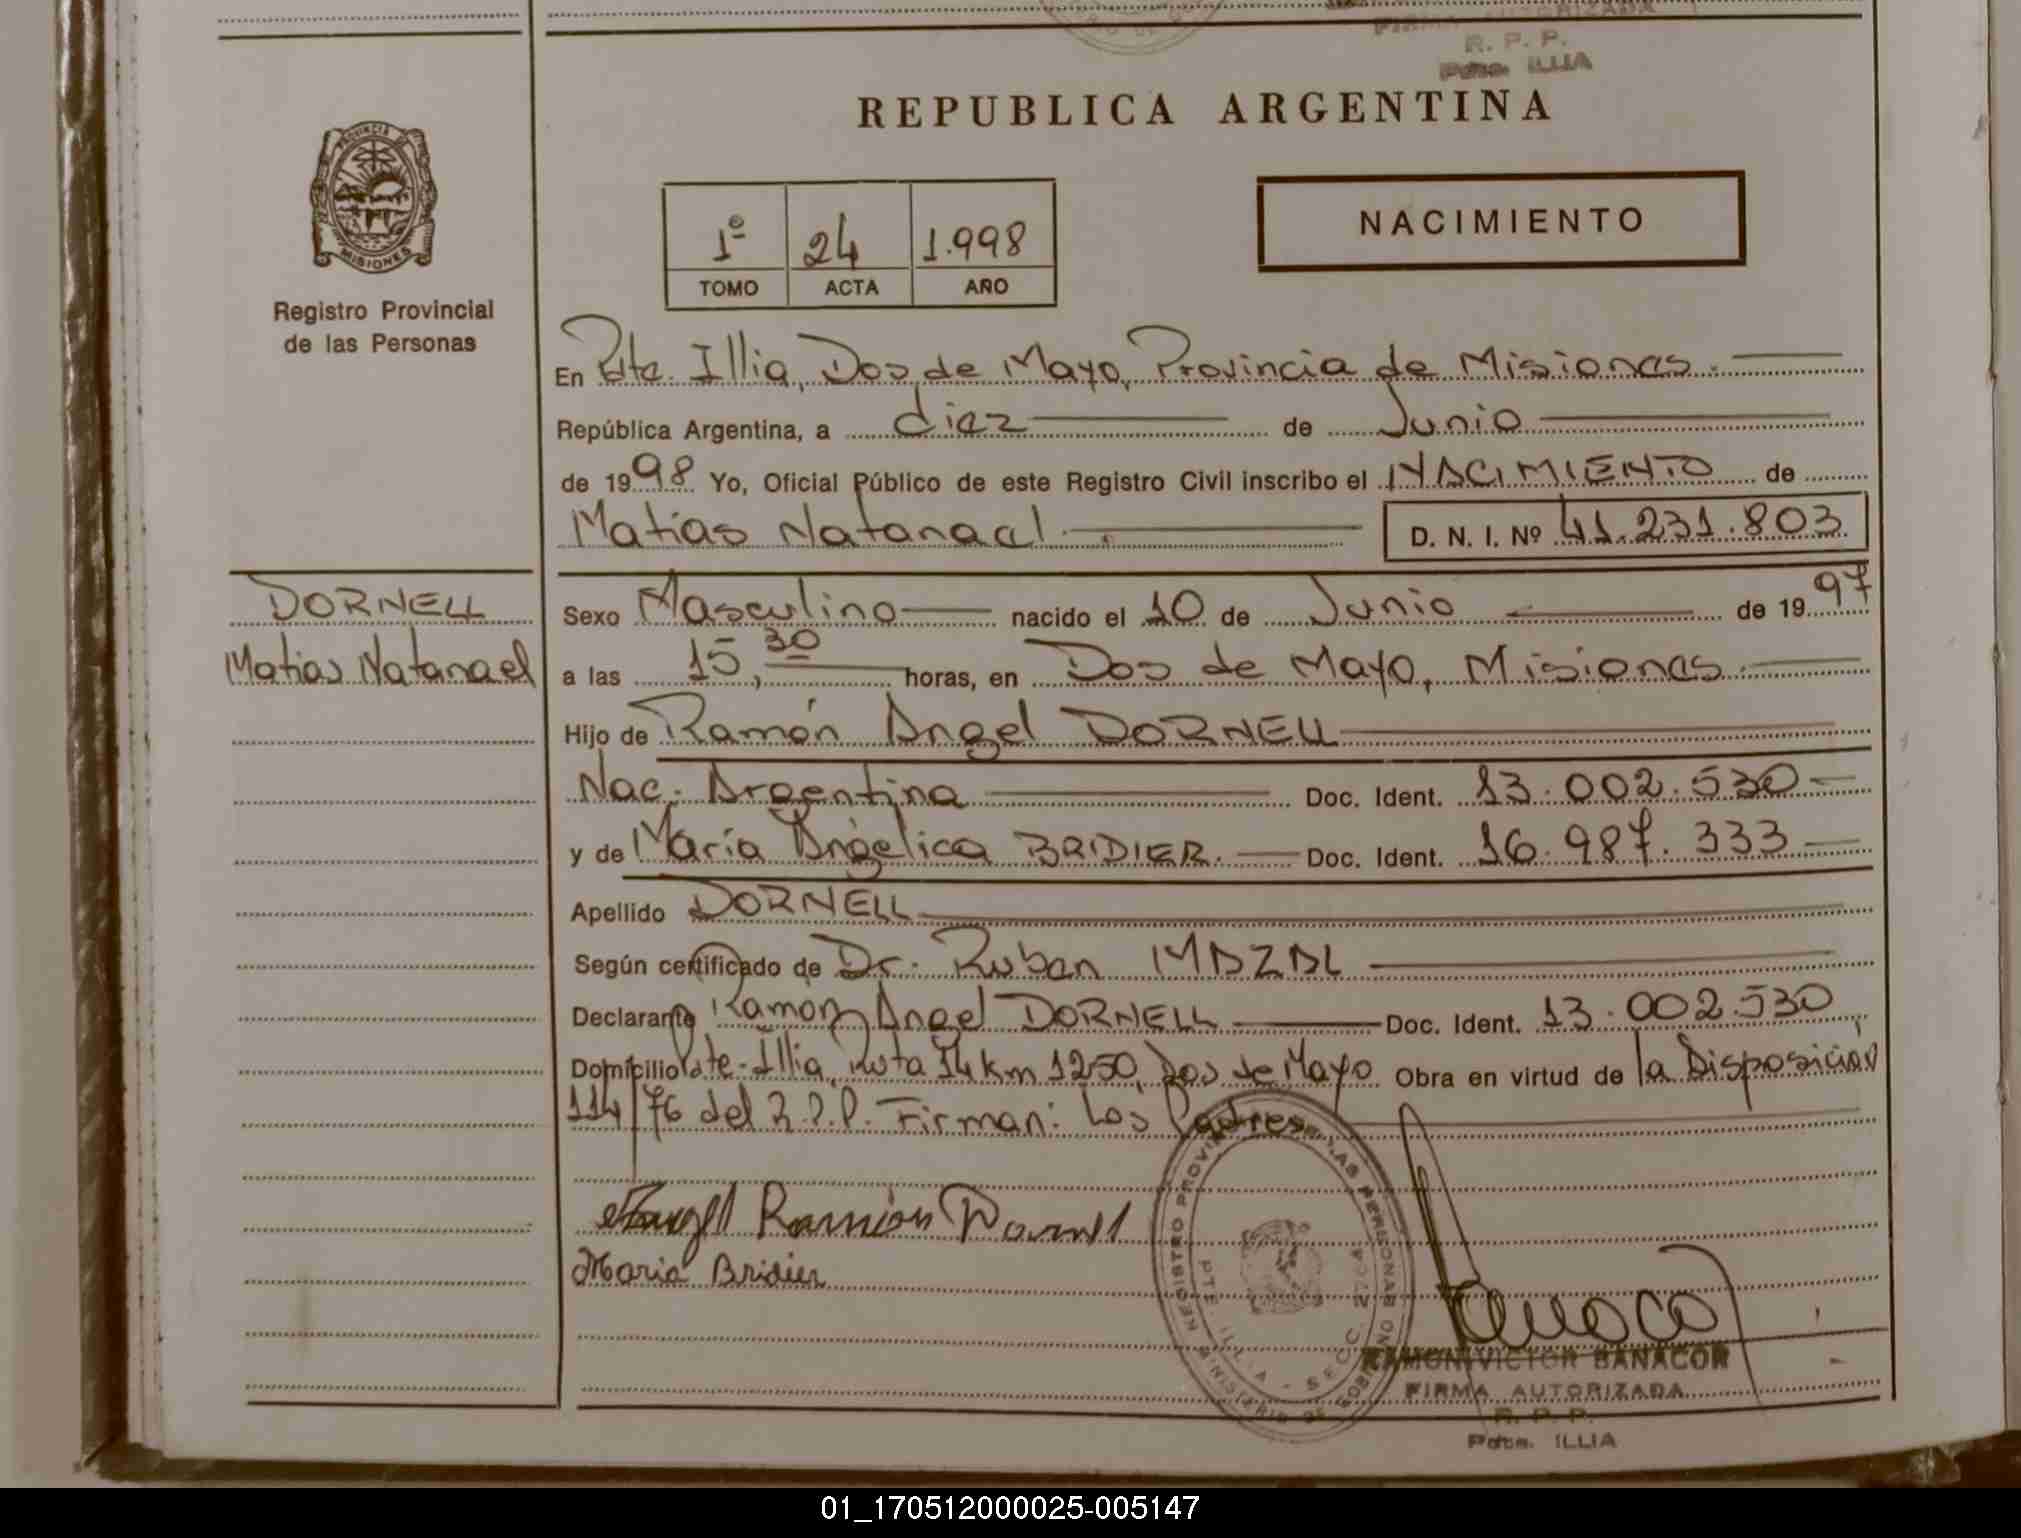 FIRMA AUTORIZADA
R. P. P.
Pdte. ILLIA
REPUBLICA ARGENTINA
PROVINCIA DE
MISIONES
Registro Provincial
de las Personas
1º 24 1.998
TOMO ACTA AÑO
NACIMIENTO
En Pdte. Illia, Dos de Mayo, Provincia de Misiones.
República Argentina, a diez de Junio
de 1998 Yo, Oficial Público de este Registro Civil inscribo el NACIMIENTO de
Matías Natanael D. N. I. Nº 41.231.803
DORNELL
Matias Natanael
Sexo Masculino nacido el 10 de Junio de 1997
a las 15,30 horas, en Dos de Mayo, Misiones.
Hijo de Ramón Angel DORNELL
Nac. Argentina Doc. Ident. 13.002.530
y de María Angélica BRIDIER. Doc. Ident. 16.987.333
Apellido DORNELL
Según certificado de Dr. Ruben MAZAL
Declarante Ramon Angel DORNELL Doc. Ident. 13.002.530
Domicilio Pdte. Illia, Ruta 14 km 1250, Dos de Mayo Obra en virtud de la Disposición
114/76 del R.P.P. Firman: Los Padres
Angel Ramón Dornel
Maria Bridier
REGISTRO PROVINCIAL DE LAS PERSONAS
MINISTERIO DE GOBIERNO
PTE. ILLIA - SECC.
RAMON VICTOR BANACOR
FIRMA AUTORIZADA
R. P. P.
Pdte. ILLIA
01_170512000025-005147